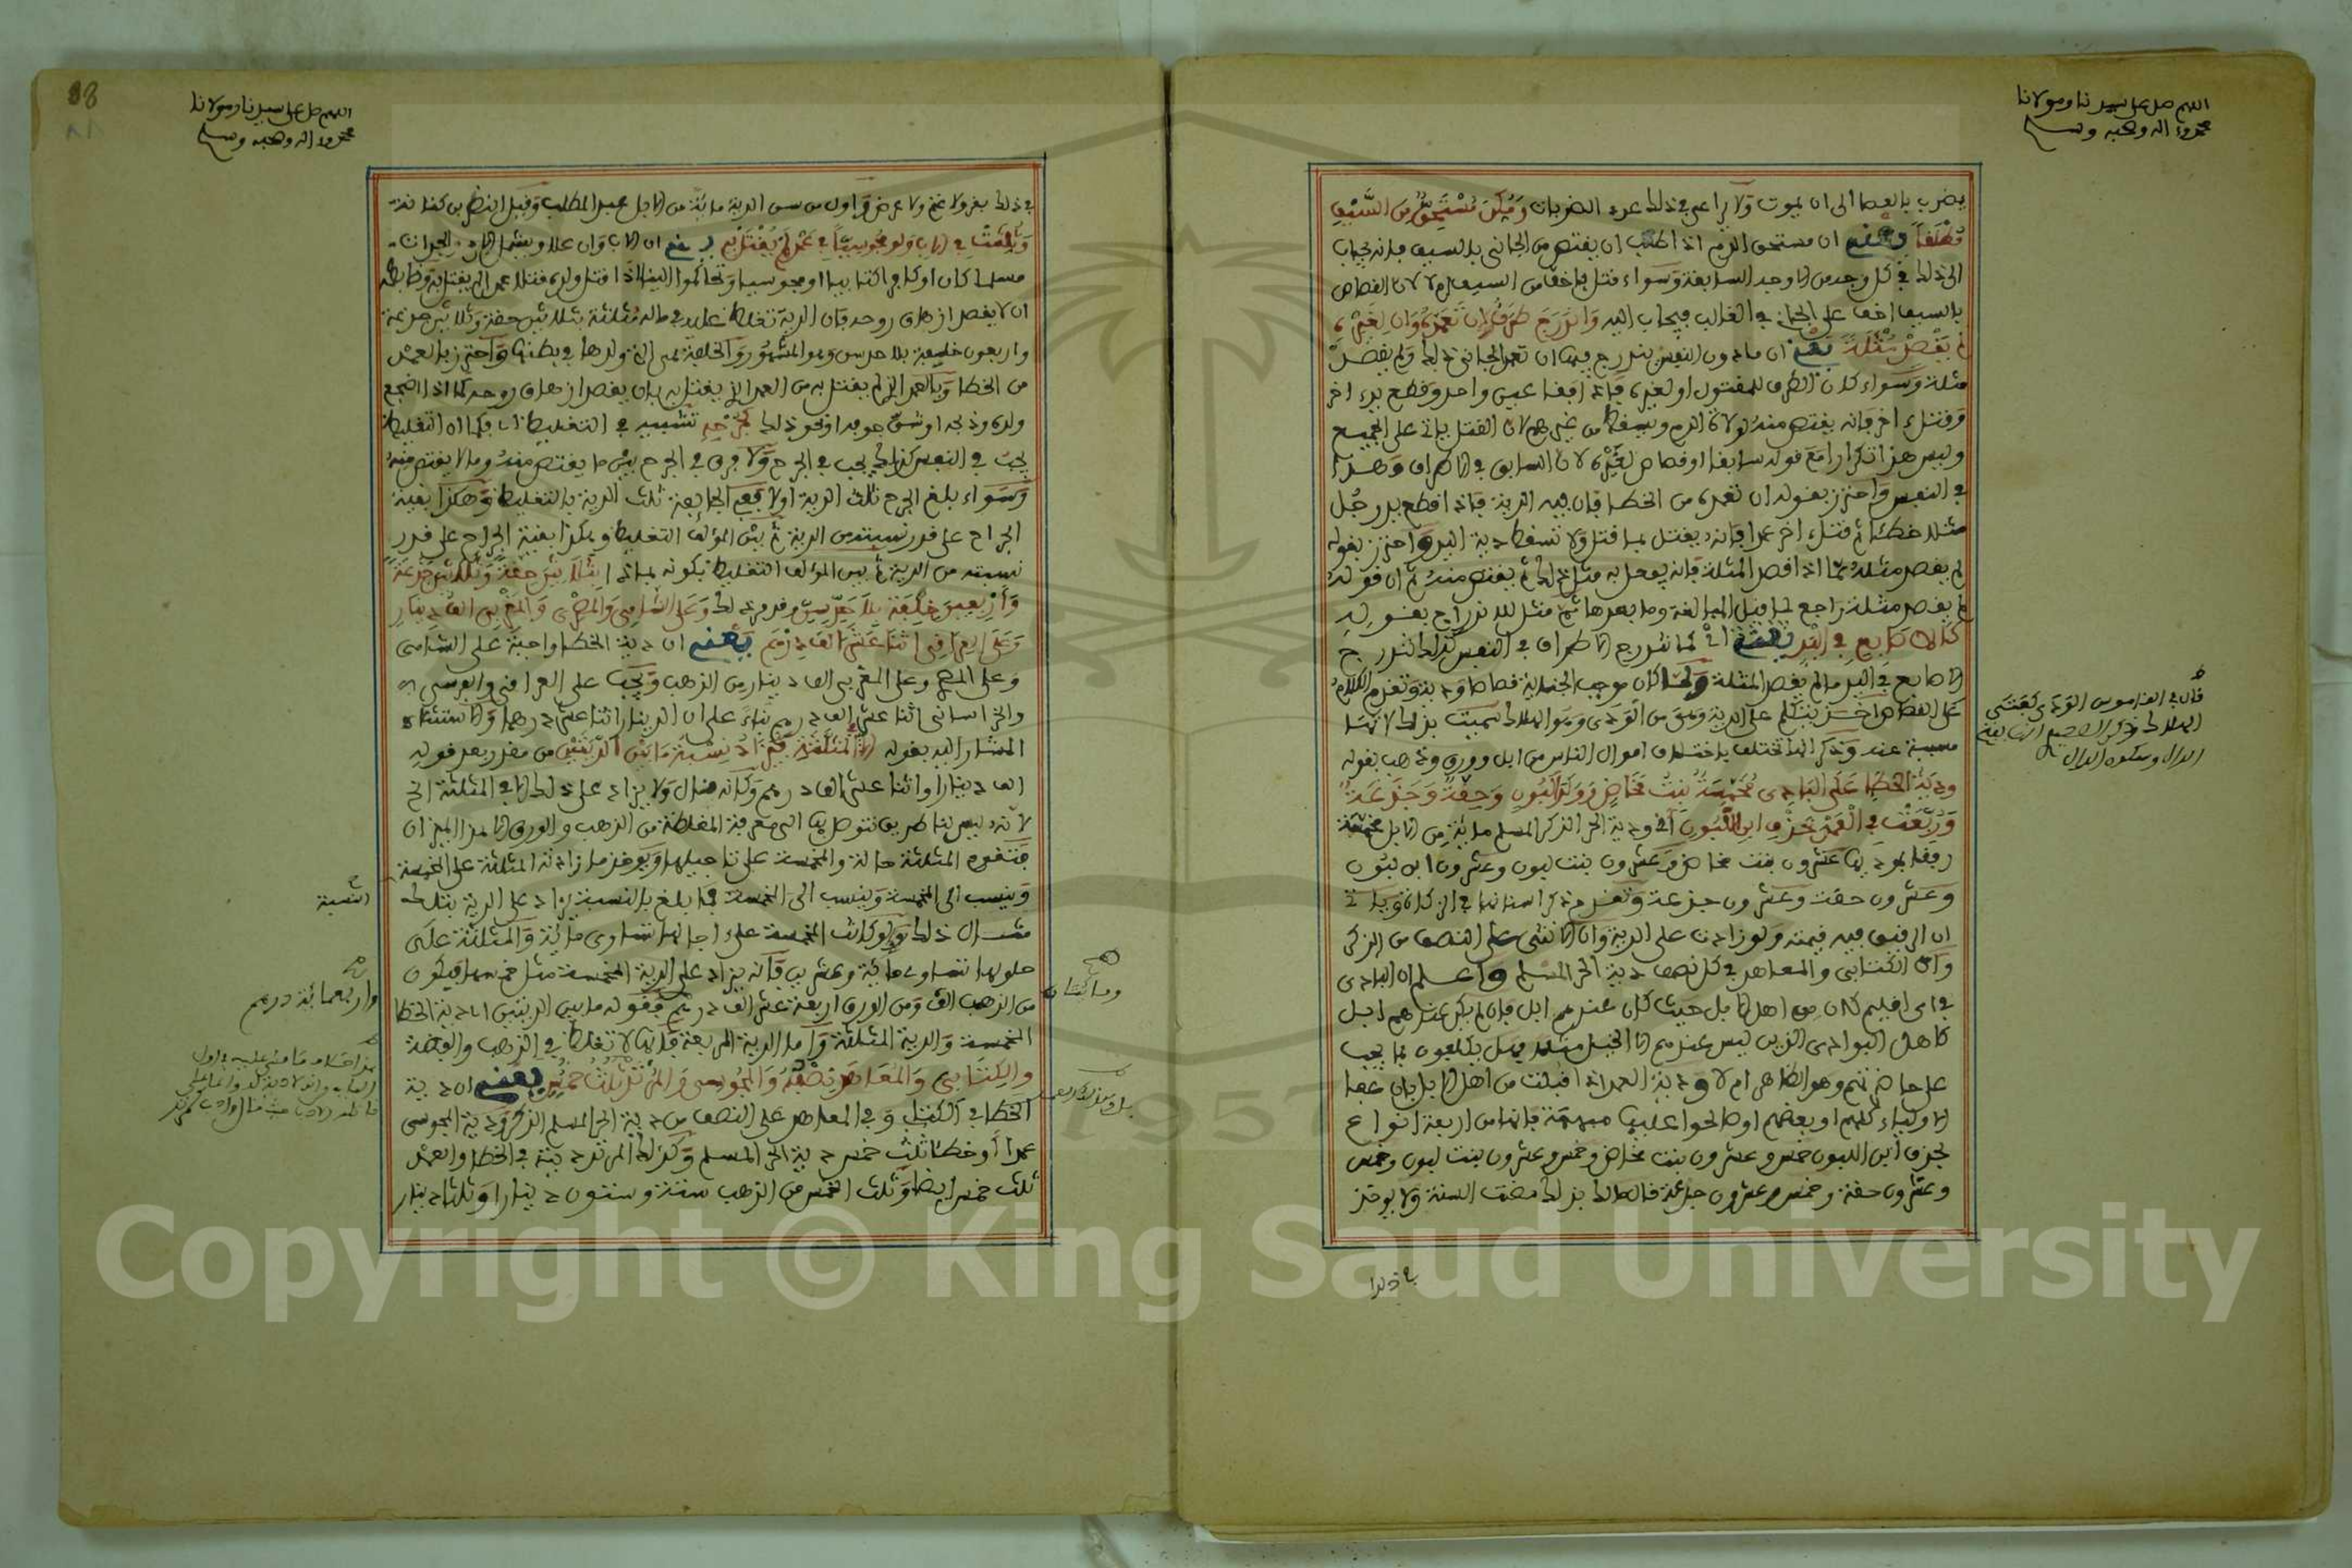 اللهم صل على سيدنا ومولانا
محمد وءاله وصحبه وسلم
يضرب بالعصا الى ان يموت ولا يراعى في ذلك عدد الضربات ومكن مستحق من السيف
مطلقا يعني ان مستحق الدم اذا طلب ان يقتص من الجاني بالسيف فانه يجاب
الى ذلك في كل وجه من الاوجه السابقة وسواء قتل باخف من السيف ام لا لان القصاص
بالسيف اخف على الجاني في الغالب فيجاب اليه واندرج طرف ان تعمده وان لغيره
لم يقصد مثلة يعني ان ما دون النفس يندرج فيها ان تعمد الجاني ذلك ولم يقصد
مثلة وسواء كان الطرف للمقتول او لغيره فاذا فقا عين واحد وقطع يد اخر
وقتل اخر فانه يقتص منه لولاة الدم ويسقط من غيرهم لان القتل ياتي على الجميع
وليس هذا تكرارا مع قوله سابقا او قصاص لغيره لان السابق في الاطراف وهذا
في النفس واحترز بقوله ان تعمده من الخطا فان فيه الدية فاذا قطع يد رجل
مثلا خطئا ثم قتل اخر عمدا فانه يقتل بما قتل ولا تسقط دية اليد واحترز بقوله
لم يقصد مثلة مما اذا قصد المثلة فانه يفعل به مثل ذلك ثم يقتص منه ثم ان قوله
لم يقصد مثلة راجع لما قبل المبالغة وما بعدها ثم مثل للاندراج بقوله
كالاصابع في اليد يعني اي كما تندرج الاطراف في النفس كذلك تندرج
الاصابع في اليد ما لم يقصد المثلة ولما كان موجب الجناية قصاصا ودية وتقدم الكلام
على القصاص اخذ يتكلم على الدية وهي من الودي وهو الهلاك سميت بذلك لانها
مسببة عنه وذكر انها تختلف باختلاف اموال الناس من ابل وورق وذهب بقوله
ودية الخطا على البادي مخمسة بنت مخاض وولدا لبون وحقة وجذعة
وربعت في العمد بحذف ابن اللبون اي ودية الحر الذكر المسلم مائة من الابل مخمسة
رفقا بمؤديها عشرون بنت مخاض وعشرون بنت لبون وعشرون ابن لبون
وعشرون حقة وعشرون جذعة وتقدم ذكر اسنانها في الزكاة وياتي
ان الرقيق فيه قيمته ولو زادت على الدية وان الانثى على النصف من الذكر
وان الكتابي والمعاهد في كل نصف دية الحر المسلم واعلم ان البادي
في اي اقليم كان من اهل الابل حيث كان عندهم ابل فان لم يكن عندهم ابل
كاهل البوادي الذين ليس عندهم الا الخيل مثلا فهل يكلفون بما يجب
على حاضرتهم وهو الظاهر ام لا ودية العمد اذا قبلت من اهل الابل بان عفا
الاولياء كلهم او بعضهم او صالحوا عليها مبهمة فانها من اربعة انواع
بحذف ابن اللبون خمس وعشرون بنت مخاض وخمس وعشرون بنت لبون وخمس
وعشرون حقة وخمس وعشرون جذعة قال مالك بذلك مضت السنة ولا يوخذ
في ذلك
قال في القاموس الودى كفتى
الهلاك
الدال وسكون الدال
88
٨٨
اللهم صل على سيدنا ومولانا
محمد وءاله وصحبه وسلم
في ذلك بقر ولا غنم ولا عرض واول من سن الدية مائة من الابل عبد المطلب وقيل النضر بن كنانة
وثلثت في الاب ولو مجوسيا في عمد لم يقتل به يعني ان الاب وان علا ويشمل الام والجدات
مسلما كان او كافرا كتابيا او مجوسيا وتحاكموا الينا اذا قتل ولده قتلا عمدا لم يقتل به وضابطه
ان لا يقصد ازهاق روحه فان الدية تغلظ عليه في ماله مثلثة بثلاثين حقة وثلاثين جذعة
واربعون خلفة بلا حد سن وهو المشهور والخلفة هي التي ولدها في بطنها واحترز بالعمد
من الخطا وبالعمد الذي لم يقتل به من العمد الذي يقتل به بان يقصد ازهاق روحه كما اذا اضجع
ولده وذبحه او شق جوفه او نحو ذلك كجرحه تشبيه في التغليظ اي فكما ان التغليظ
يجب في النفس كذلك يجب في الجرح ولا فرق في الجرح بين ما يقتص منه وما لا يقتص منه
وسواء بلغ الجرح ثلث الدية او لا ففي الجائفة ثلث الدية بالتغليظ وهكذا بقية
الجراح على قدر نسبته من الدية ثم بين المؤلف التغليظ وهكذا بقية الجراح على قدر
نسبته من الدية ثم بين المؤلف التغليظ بكونه بماذا بثلاثين حقة وثلاثين جذعة
واربعين خلفة بلا حد سن وقدم ذلك وعلى الشامي والمصري والمغربي الف دينار
وعلى العراقي اثنا عشر الف درهم يعني ان دية الخطا واجبة على الشامي
وعلى المصري وعلى المغربي الف دينار من الذهب ويجب على العراقي والفرسي
والخراساني اثنا عشر الف درهم بناء على ان الدينار اثنا عشر درهما والاستثناء
المشار اليه بقوله الا المثلثة فيزاد نسبة ما بين الديتين من مقدر بعد قوله
الف دينار او اثنا عشر الف درهم وكانه قال ولا يزاد على ذلك الا في المثلثة الخ
لانه ليس لنا طريق نتوصل بها الى معرفة المغلظة من الذهب والورق الا هذا الميزان
فتقوم المثلثة حالة والمخمسة على تاجيلها ويوخذ ما زادته المثلثة على المخمسة
وينسب الى المخمسة وينسب الى المخمسة فما بلغ بالنسبة يزاد على الدية بتلك
مثال ذلك ولو كانت المخمسة على اجالها تساوي مائة والمثلثة على
حلولها تساوي مائة وعشرين فانه يزاد على الدية المخمسة مثل خمسها فيكون
من الذهب الف ومن الورق اربعة عشر الف درهم فقوله ما بين الديتين اي دية الخطا
المخمسة والدية المثلثة واما الدية المربعة فانها لا تغلظ في الذهب والفضة
والكتابي والمعاهد نصفه والمجوسي والمرتد ثلث خمس يعني ان دية
الخطا في الكتابي وفي المعاهد على النصف من دية الحر المسلم الذكر ودية المجوسي
عمدا او خطئا ثلث خمس دية الحر المسلم وكذلك المرتد ديته في الخطا والعمد
ثلث خمس ايضا وثلث الخمس من الذهب ستة وستون دينارا وثلثا دينار
النسبة
واربعمائة درهم
Copyright © King Saud University
1957